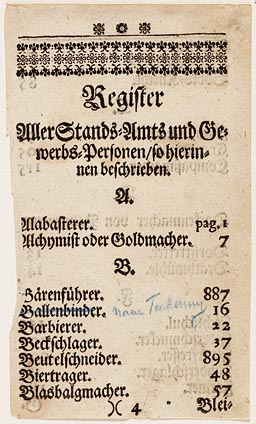 Register
Aller Stands-Amts und Ge-
werbs-Personen/so hierin-
nen beschrieben.
A.
Alabasterer. pag. 1
Alchymist oder Goldmacher. 7
B.
Bärenführer. 887
Ballenbinder. naar 16
Barbierer. 22
Beckschlager. 37
Beutelschneider. 895
Biertrager. 48
Blasbalgmacher. 57
)( 4 Blei-